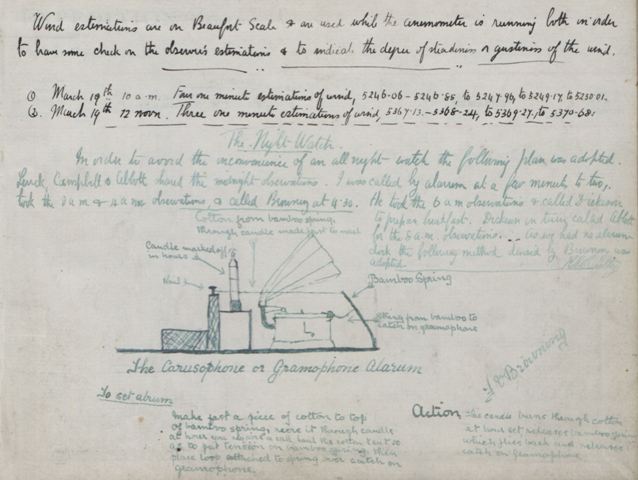 Wind estimations are on Beaufort Scale & are used while the anemometer is running both in order
to have some check on the observer's estimations & to indicate the degree of steadiness or gustiness of the wind.
① March 19th 10 a.m. Four one minute estimations of wind, 5246.06 - 5246.85, to 5247.96, to 5249.17, to 5250.01.
②. March 19th 12 noon. Three one minute estimations of wind, 5367.13. - 5368.24, to 5369.27, to 5370.68.
The Night Watch.
In order to avoid the inconvenience of an all night watch the following plan was adopted.
Levick, Campbell & Abbott shared the midnight observations. I was called by alarum at a few minutes to two,
took the 2 a.m. & 4 a.m. observations, & called Browning at 4.30. He took the 6 a.m. observations & called Dickason
to prepare breakfast. Dickason in turn called Abbott
for the 8 a.m. observations. As we had no alarum
clock the following method devised by Browning was
adopted.
Cotton from bamboo spring,
through candle made fast to nail
Candle marked off
in hours
Nail
Bamboo Spring
String from bamboo to
catch on gramophone
The Carusophone or Gramophone Alarum
F V Browning
To set alarum
Make fast a piece of cotton to top
of bamboo spring, reeve it through candle
at hour you require a call, haul the cotton taut so
as to put tension on bamboo spring, then
place loop attached to spring over catch on
gramophone.
Action - As candle burns through cotton
at hour set releases bamboo spring
which flies back and releases
catch on gramophone